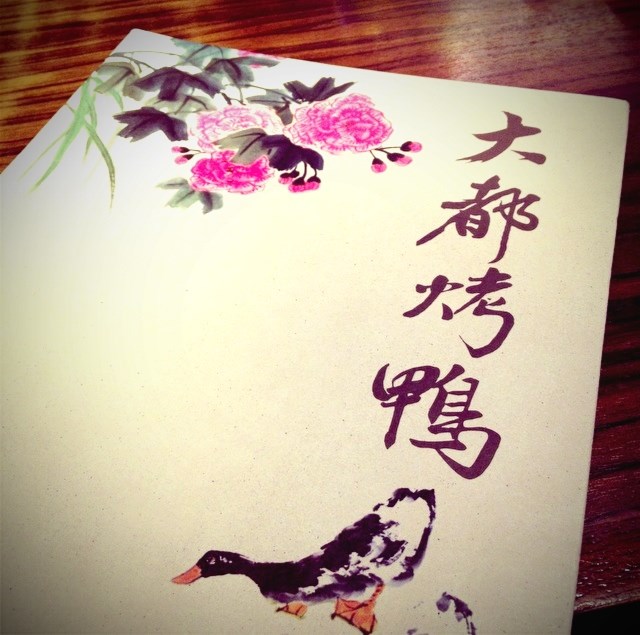 大都烤鴨